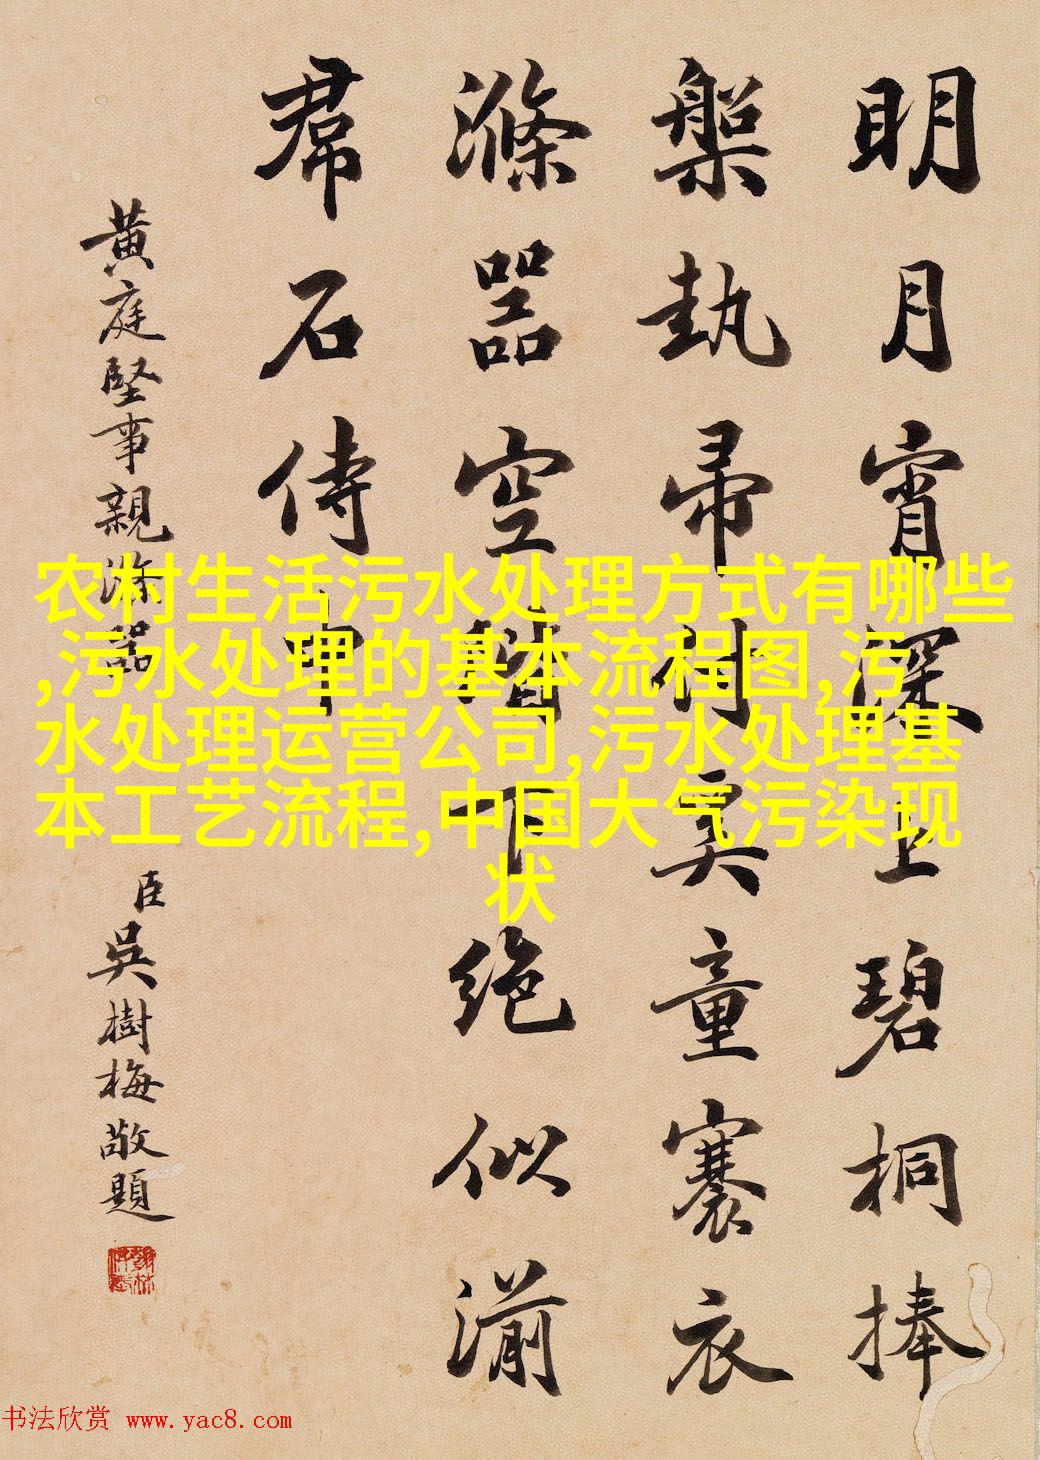 明月宵深上碧桐捧
槃執帚付奚童褰衣
滌器空階下絶似湔
帬石侍中
黄庭堅事親滌器
臣吳樹梅敬題
农村生活污水处理方式有哪些
,污水处理的基本流程图,污
水处理运营公司,污水处理基
本工艺流程,中国大气污染现
状
书法欣赏 www.yac8.com